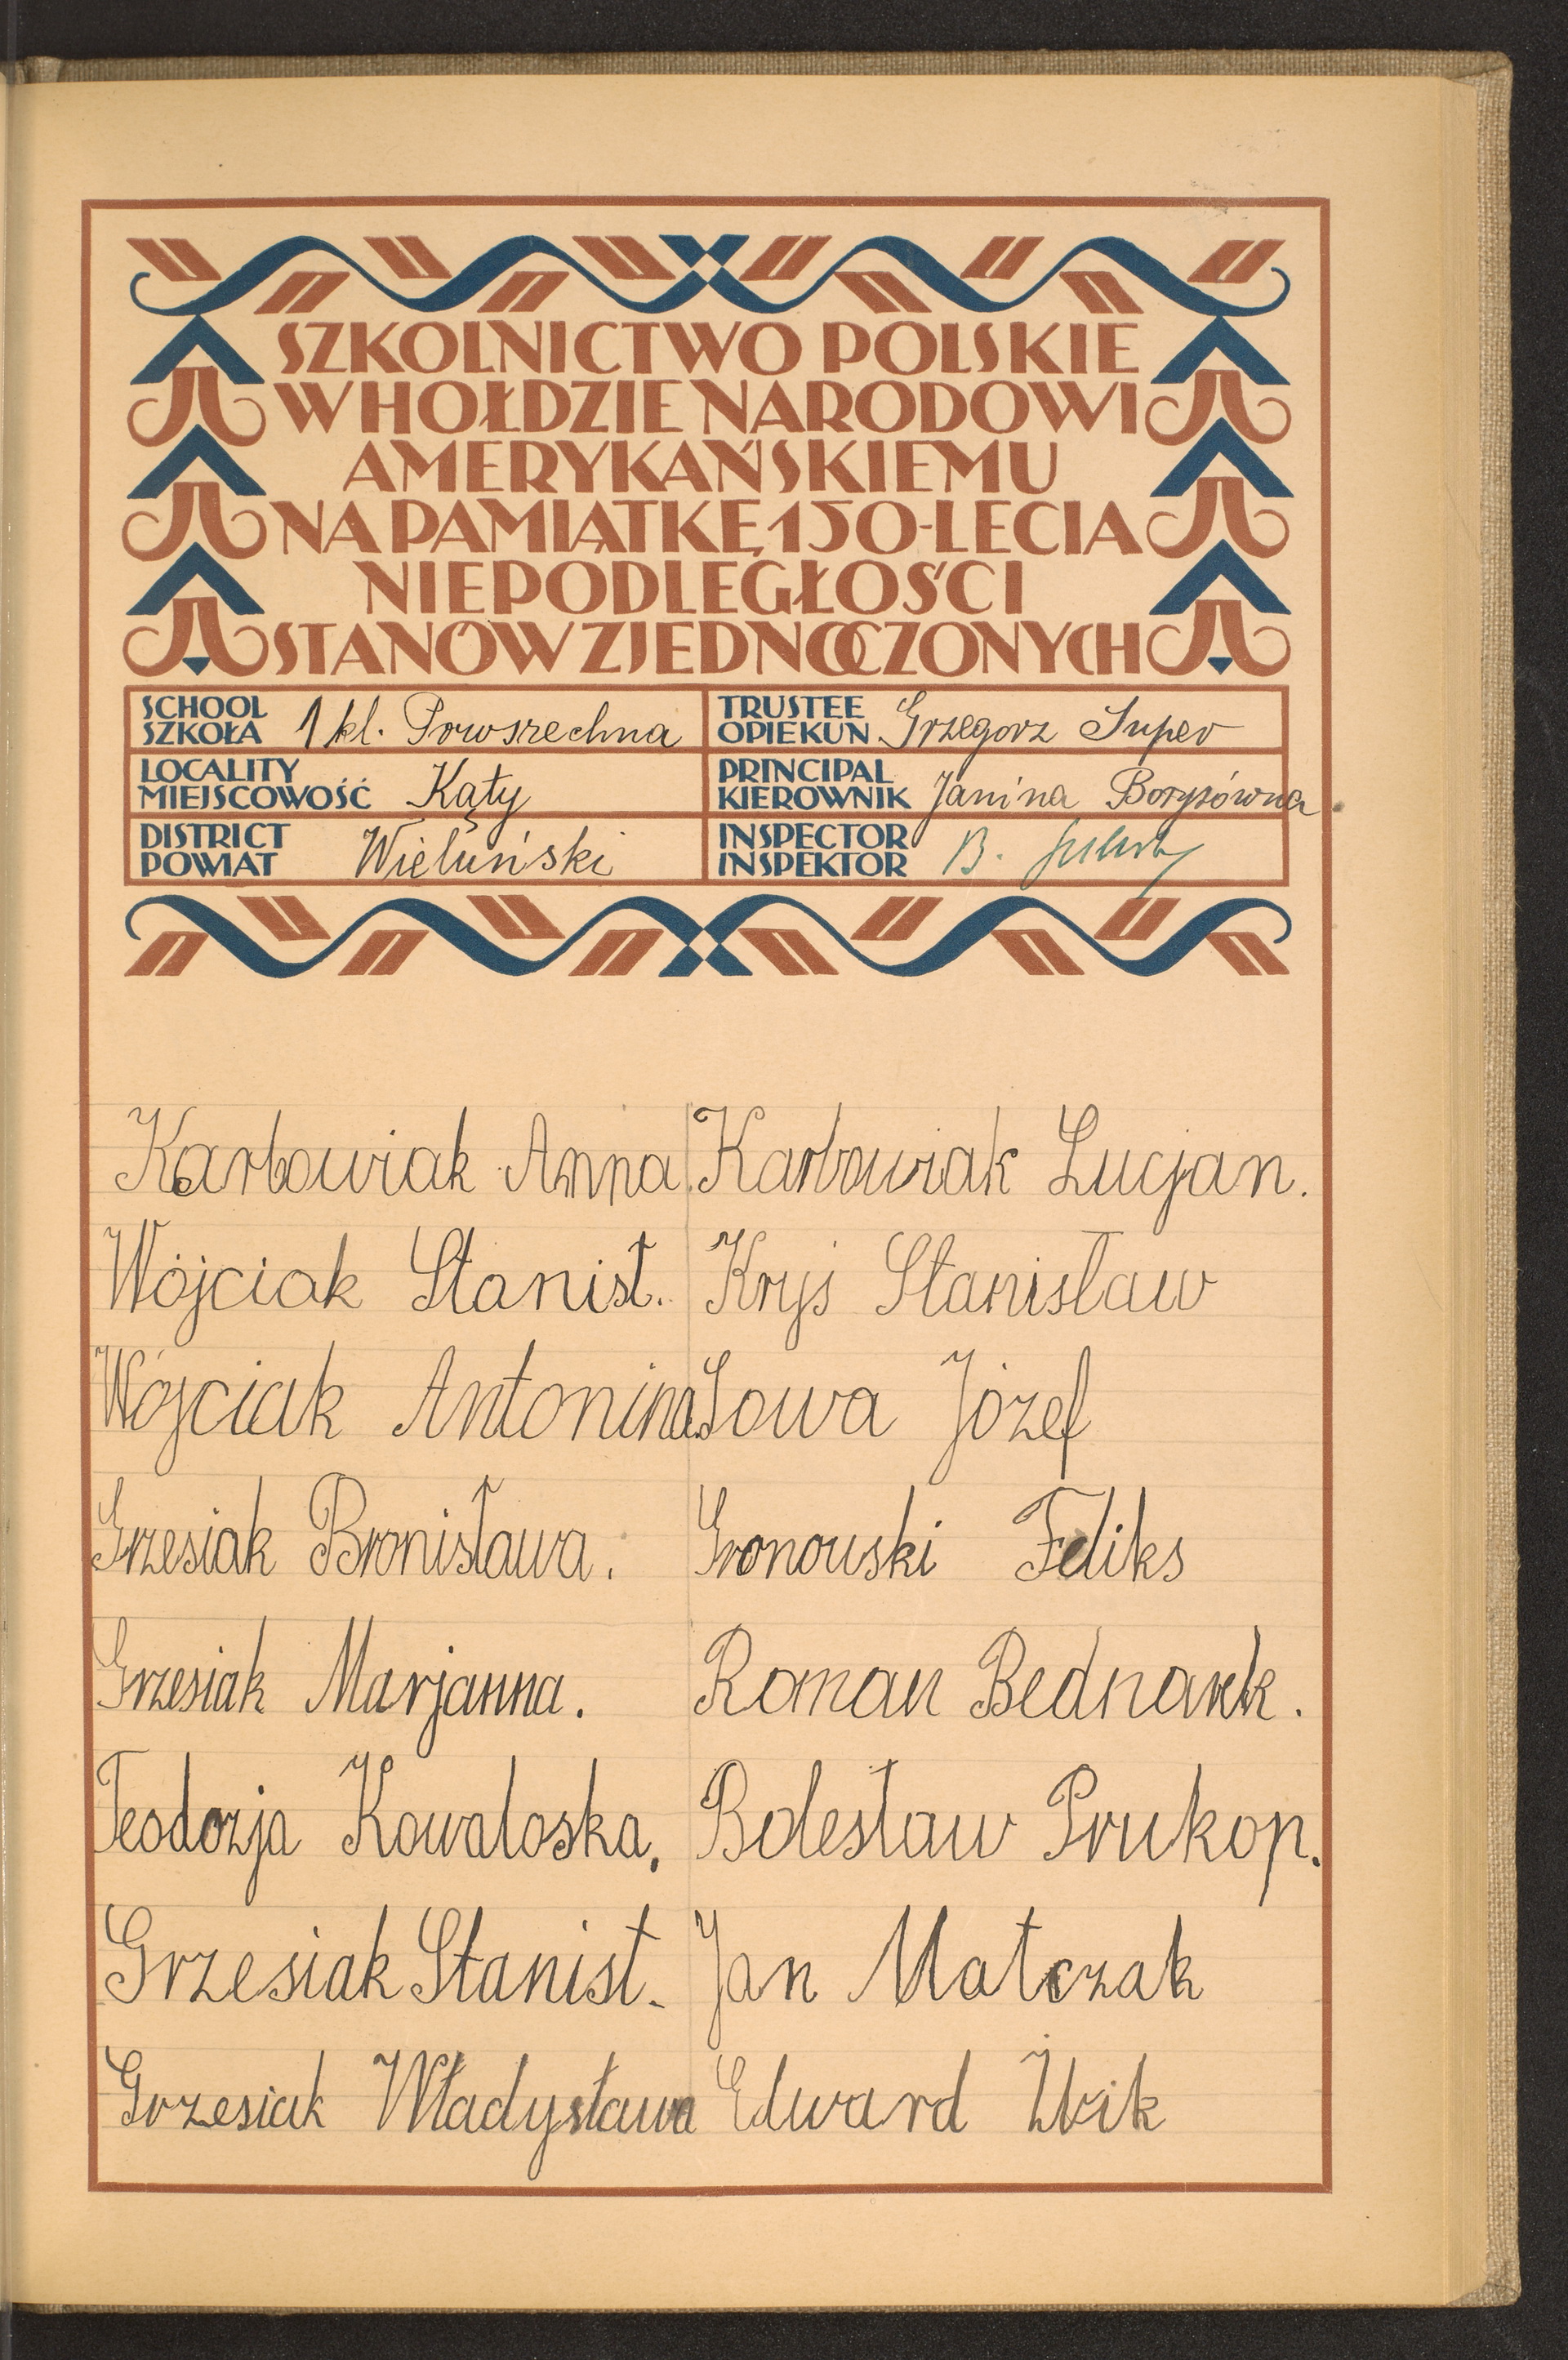 SZKOLNICTWO POLSKIE
W HOŁDZIE NARODOWI
AMERYKAŃSKIEMU
NA PAMIĄTKĘ 150-LECIA
NIEPODLEGŁOŚCI
STANÓW ZJEDNOCZONYCH
SCHOOL
SZKOŁA 1 kl. Powszechna
TRUSTEE
OPIEKUN Grzegorz Super
LOCALITY
MIEJSCOWOŚĆ Kąty
PRINCIPAL
KIEROWNIK Janina Borysówna
DISTRICT
POWIAT Wieluński
INSPECTOR
INSPEKTOR B.
Karbowiak Anna.
Wójciak Stanisł.
Wójciak Antonina.
Grzesiak Bronisława.
Grzesiak Marjanna.
Teodozja Kowaloska.
Grzesiak Stanisł.
Grzesiak Władysława
Karbowiak Lucjan.
Kryś Stanisław
Sowa Józef
Gronowski Feliks
Roman Bednarek.
Bolesław Prukop.
Jan Matczak
Edward Żbik